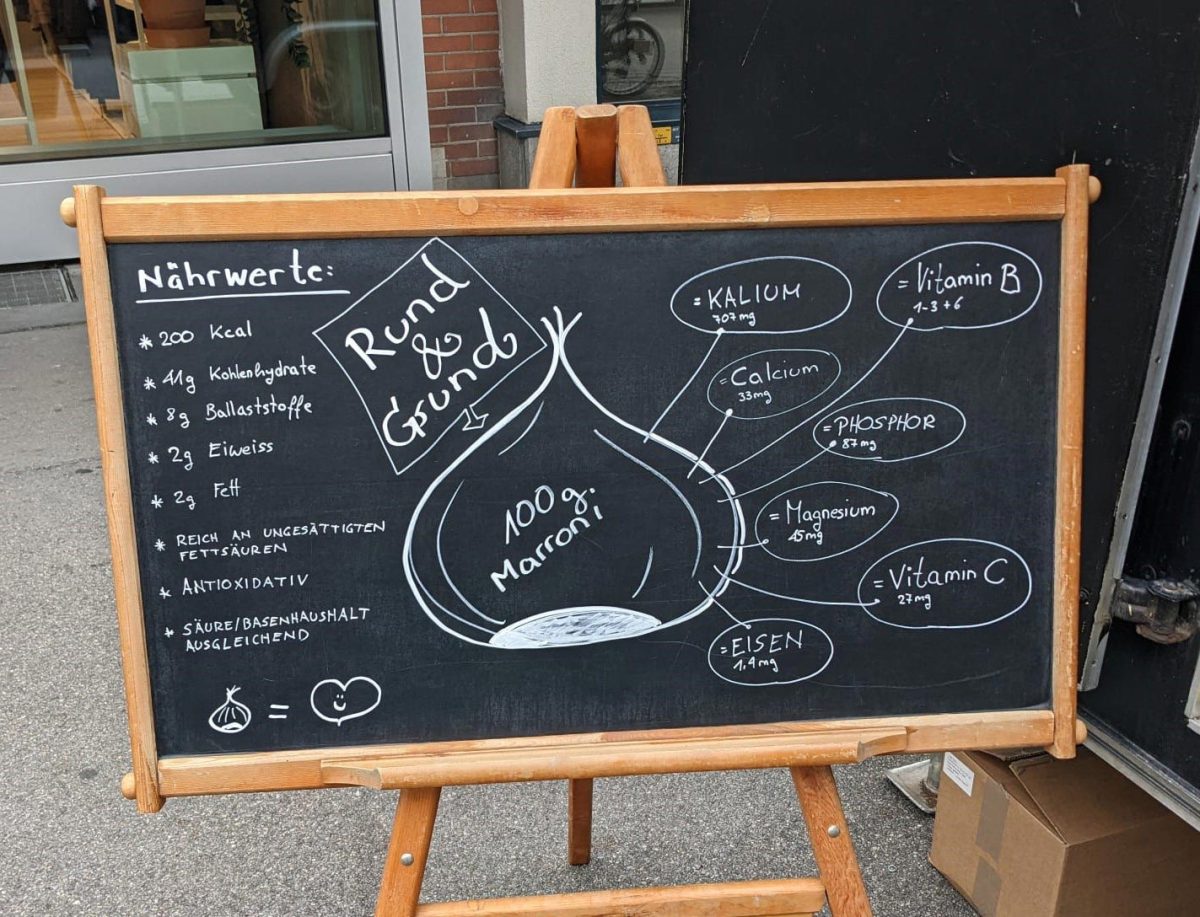 Nährwerte:
* 200 Kcal
* 41g Kohlenhydrate
* 8g Ballaststoffe
* 2g Eiweiss
* 2g Fett
* REICH AN UNGESÄTTIGTEN
FETTSÄUREN
* ANTIOXIDATIV
* SÄURE/BASENHAUSHALT
AUSGLEICHEND
=
Rund
&
Gsund
100g.
Marroni
= KALIUM
707mg
= Vitamin B
1-3+6
= Calcium
33mg
= PHOSPHOR
87mg
= Magnesium
45mg
= Vitamin C
27mg
= EISEN
1,4mg